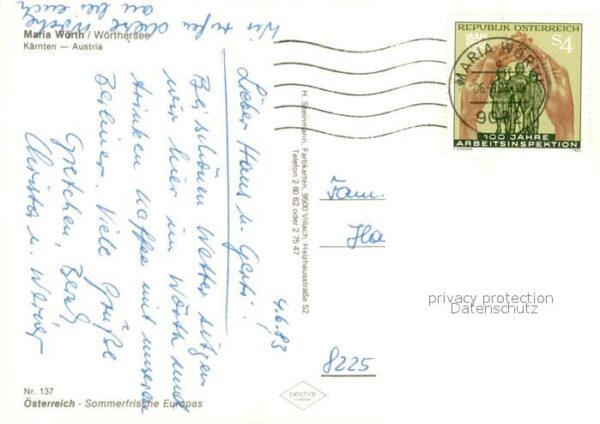 Maria Wörth / Wörthersee
Kärnten — Austria
Wir rufen diese Woche
an bei euch
4.6.83
Lieber Hans u. Gerti!
Bei schönen Wetter sitzen
wir hier im Wörth und
trinken Kaffee mit unseren
Berliner. Viele Grüße
Gretchen,
Christa u. Werner
H. Steinmann, Farbkarten, 9500 Villach, Heizhausstraße 52
Telefon 2 80 62 oder 2 75 47
REPUBLIK ÖSTERREICH
S4
MARIA WÖRTH
100 JAHRE
ARBEITSINSPEKTION
Fam.
Ha
8225
privacy protection
Datenschutz
Nr. 137
Österreich - Sommerfrische Europas